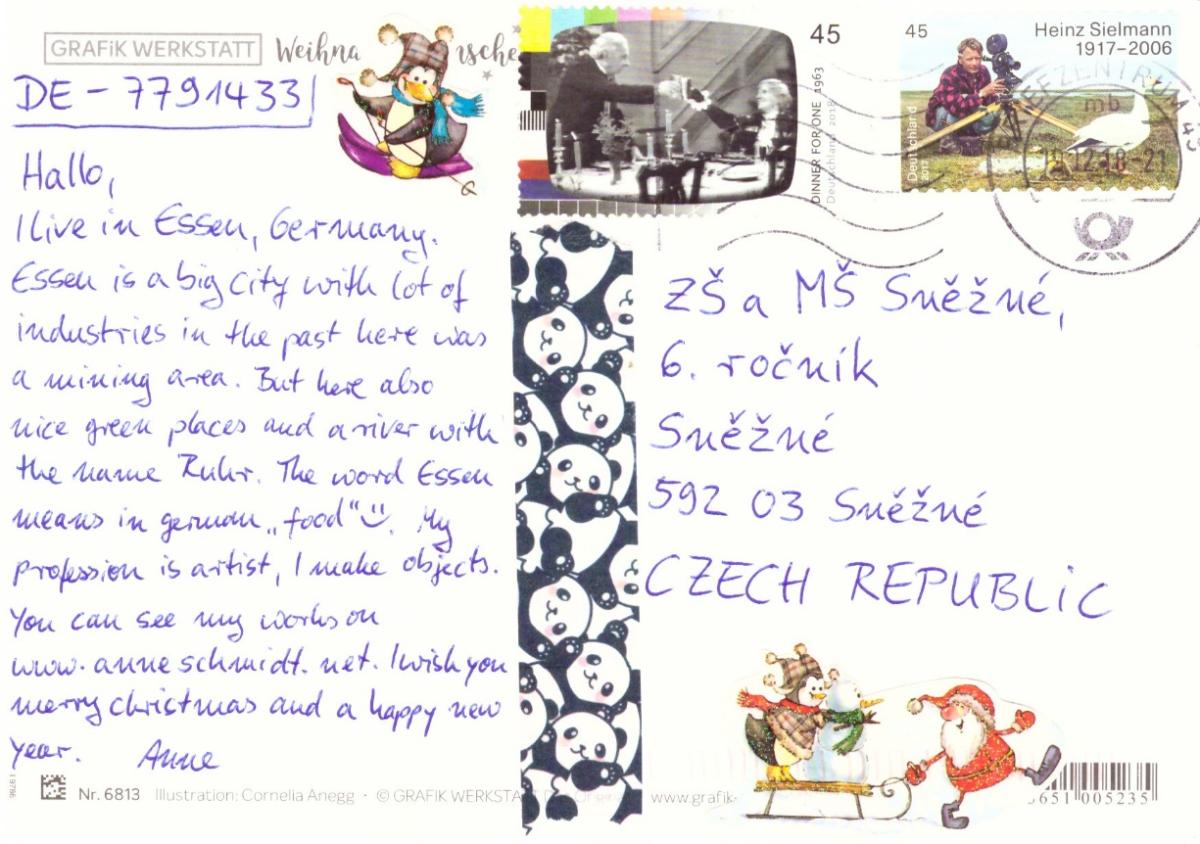 GRAFiK WERKSTATT Weihna
DE - 7791433
Hallo,
I live in Essen, Germany.
Essen is a big City with lot of
industries in the past here was
a mining area. But here also
nice green places and a river with
the name Ruhr. The word Essen
means in german „food“ ü. My
profession is artist, I make objects.
You can see my works on
www.anneschmidt.net. I wish you
merry christmas and a happy new
year. Anne
Nr. 6813 Illustration: Cornelia Anegg · © GRAFIK WERKSTA
45
DINNER FOR ONE 1963
Deutschland 2018
45
Heinz Sielmann
1917–2006
Deutschland
2017
BRIEFZENTRUM 45
mb
.12.18-21
ZŠ a MŠ Sněžné,
6. ročník
Sněžné
592 03 Sněžné
CZECH REPUBLiC
www.grafik-
651 005235